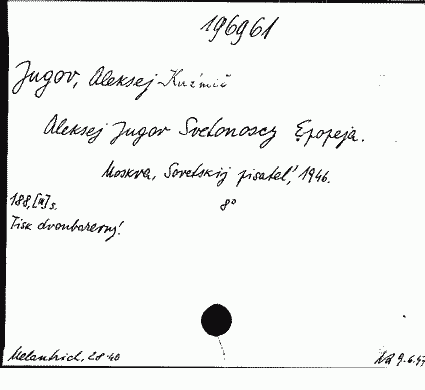 196961
Jugov, Aleksej Kuźmič
Aleksej Jugov Svetonoscy Ępopeja.
Moskva, Sovetskij pisatel', 1946.
188, [4] s. 8°
Tisk dvoubarevný!
Melantrich, 28.40 9.6.47